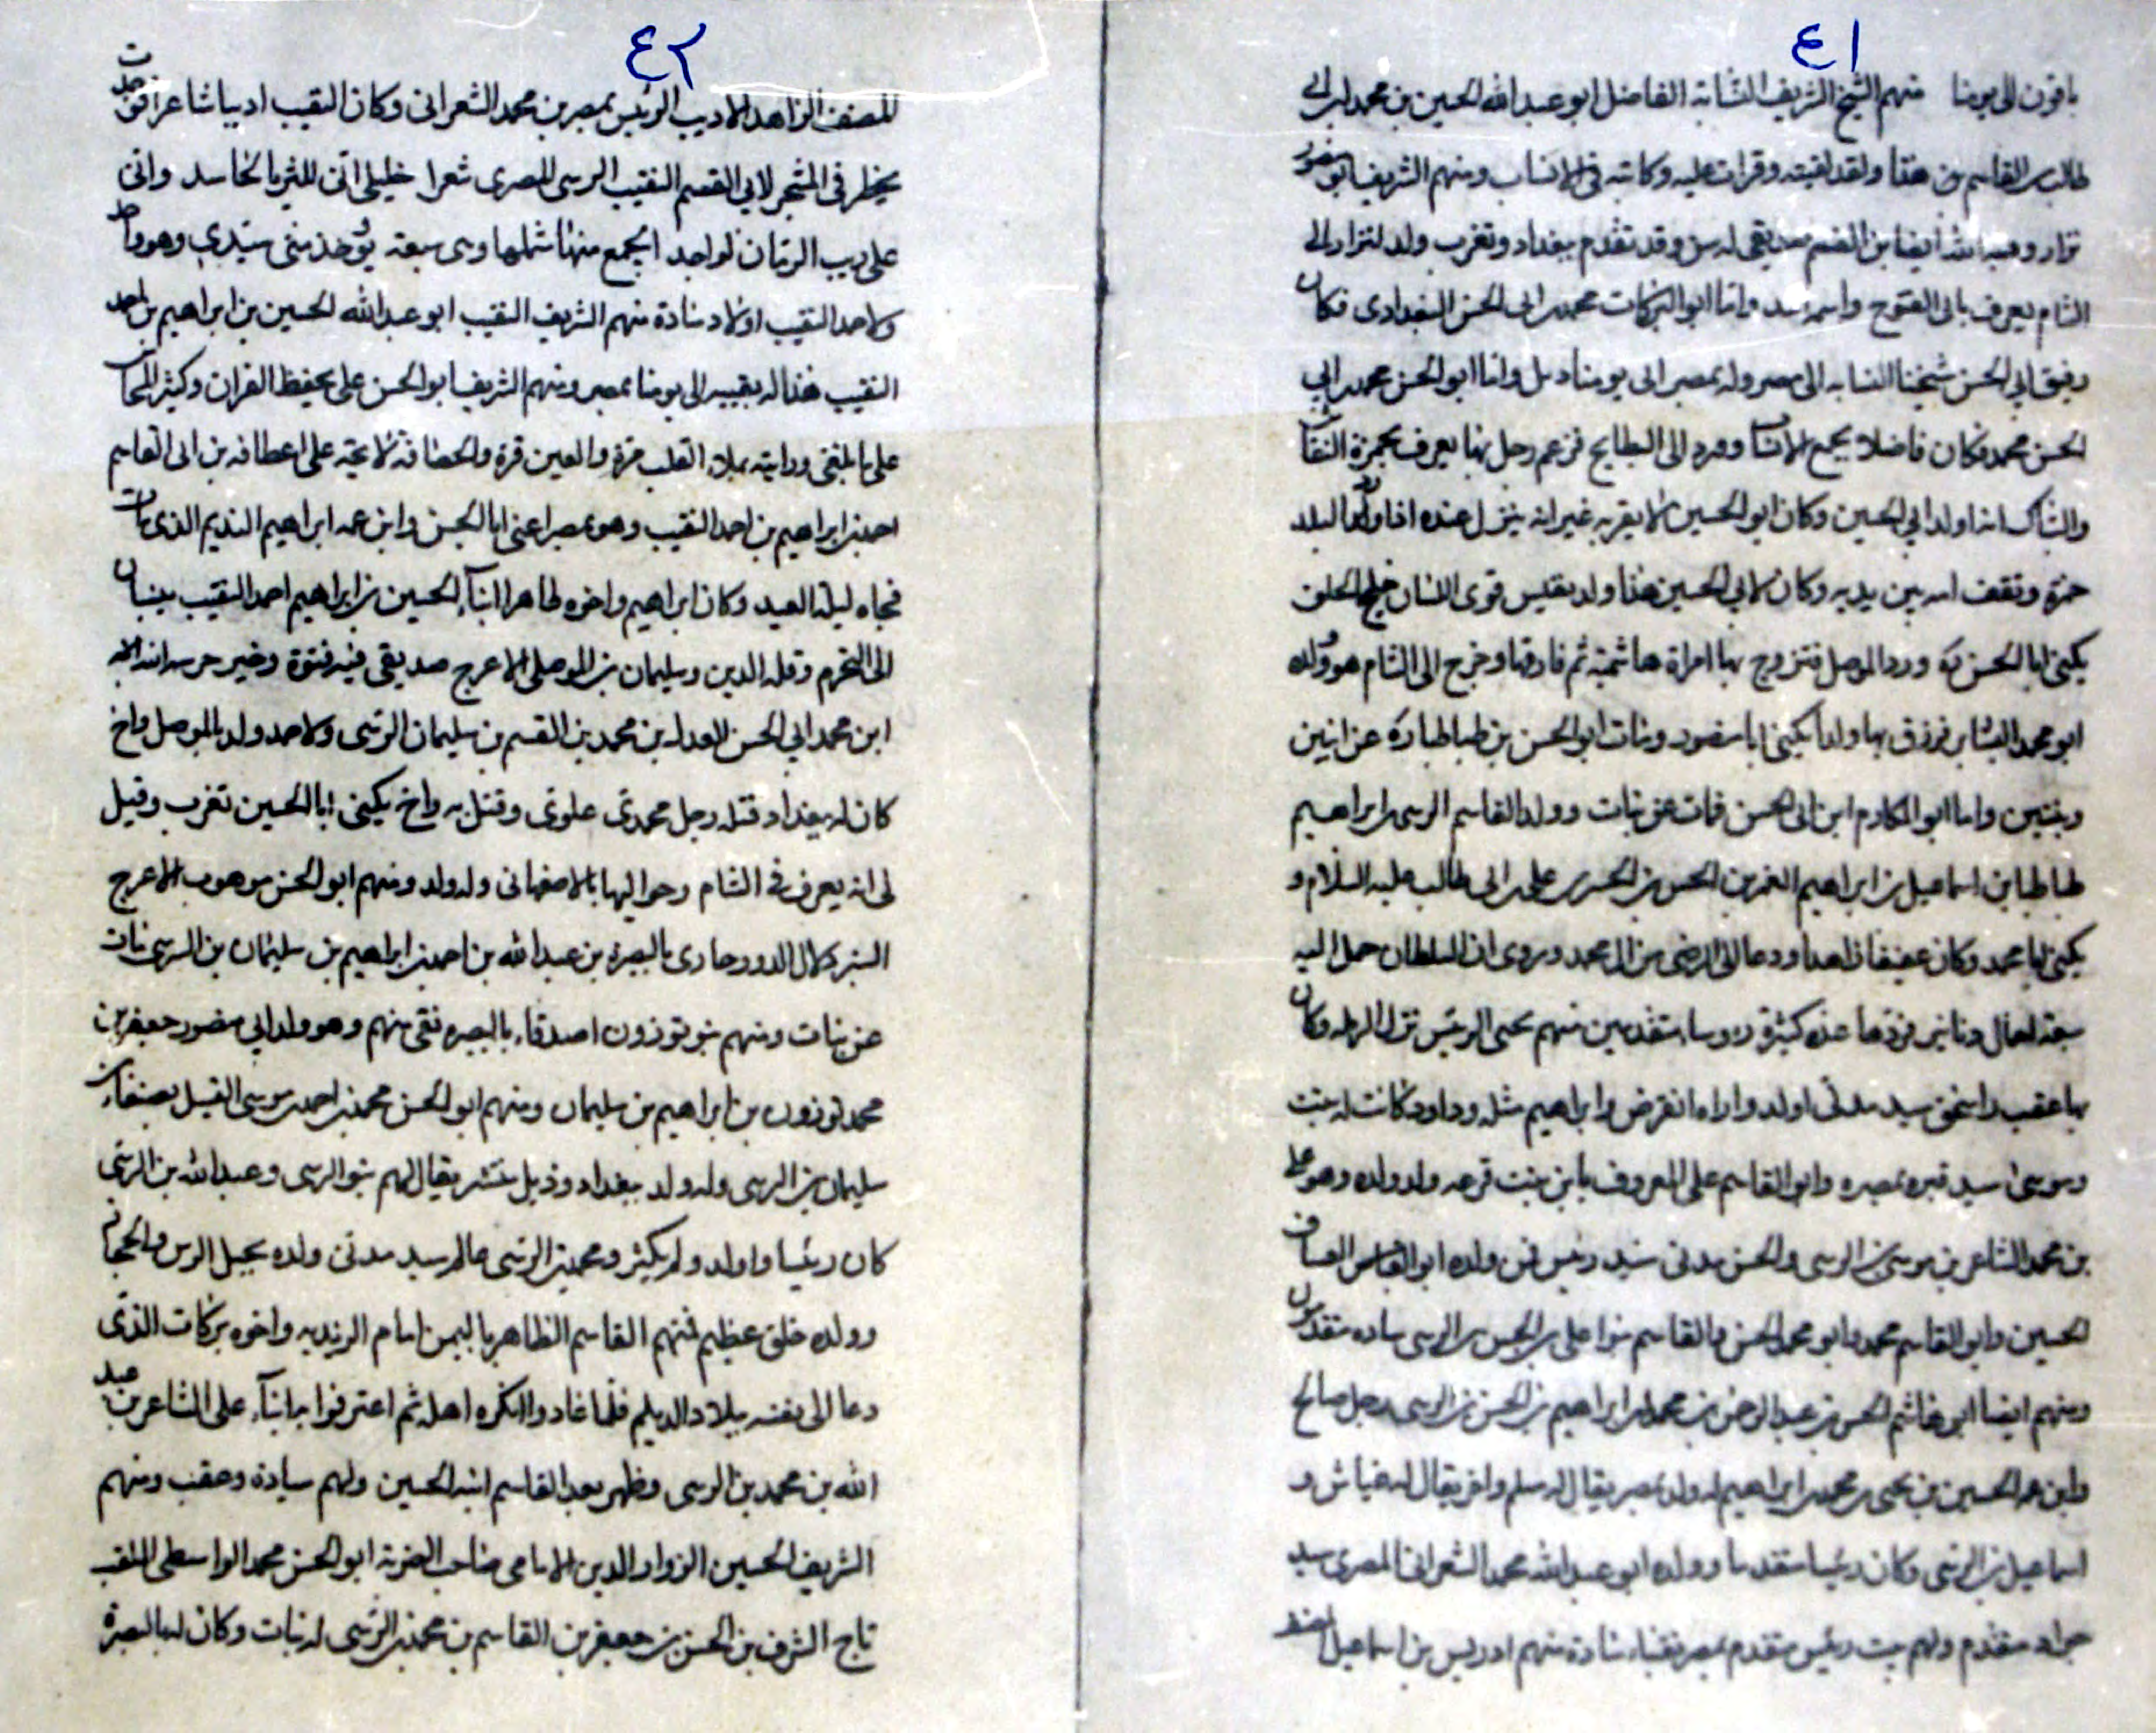 ٤١
باقون الى يومنا منهم الشيخ الشريف النسابة الفاضل ابو عبد الله الحسين بن محمد ابن ابي
طالب بن القاسم بن هذا ولقد لقيته وقرات عليه وكاتبته في الانساب ومنهم الشريف ابو منصور
نزار وهبة الله ايضا بن القسم صديقي له سن وقد تقدم ببغداد وتغرب ولد لنزار الى
الشام يعرف بابي الفتوح واسمه وانا ابو البركات محمد بن ابي الحسن البغدادى فكان
رفيق ابي الحسن شيخنا النسابه الى مصر وله بمصر الى يومنا واما ابو الحسن محمد بن ابي
الحسن محمد فكان فاضلا يجمع الانساب وورد الى البطايح فزعم رجل بها يعرف بحمزة
والشاك انه اولد ابي الحسين وكان ابو الحسين لا يقر به غير انه ينزل عنده اذا البلد
حمزة وتقف امه بين يديه وكان لابي الحسين هذا ولد قوى اللسان الخلق
يكنى ابا الحسن ورد الموصل فتزوج بها امراة هاشمية ثم فارقها وخرج الى الشام هو وولده
ابو محمد فرزق بها ولدا يكنى ابا منصور ومات ابو الحسن بن طباطبا عن ابنين
وبنتين واما ابو المكارم ابن ابي الحسن فمات عن بنات وولد القاسم الرسى بن ابراهيم
طباطبا بن اسماعيل بن ابراهيم الغمر بن الحسن بن الحسن بن على بن ابي طالب عليه السلام و
يكنى ابا محمد وكان عفيفا زاهدا ودعا الى الرضى من ال محمد وروى ان السلطان حمل اليه
سبعة احمال دنانير فردها عدة كثيرة روساء متقدمين منهم يحيى الرئيس نزل الرملة وكان
بها عقب واسحق سيد مدني اولد واراه انقرض وابراهيم مثله وداود كانت له بنت
وموسى سيد قبره بمصر وابو القاسم على المعروف بابن بنت فرعه ولد ولده وهو على
بن محمد الشاعر بن موسى بن الرسى والحسن مدني سيد رئيس فمن ولده ابو العباس
الحسين وابو القاسم محمد وابو محمد الحسن والقاسم بنوا على بن الحسن بن الرسى ساده متقدمون
ومنهم ايضا ابن هاشم الحسن بن عبد الرحمن بن محمد بن ابراهيم بن الحسن بن الرسى رجل صالح
وابن عمه الحسين بن يحيى بن محمد بن ابراهيم له ولد بمصر يقال له مسلم واخر يقال له و
اسماعيل بن الرسى وكان رئيسا متقدما وولده ابو عبد الله محمد الشعرانى المصرى سيد
متقدم ولهم بيت رئيس متقدم بمصر نقباء سادة منهم ادريس بن اسماعيل
٤٢
المصنف الزاهد الاديب الرئيس بمصر بن محمد الشعرانى وكان النقيب اديبا شاعرا فوجدت
بخطه في المشجر لابي القسم النقيب الرسى المصرى شعرا خليلى انى للثريا لحاسد وانى
على ريب الزمان لواجد ايجمع منها شملها وهى سبعة ويؤخذ منى سيدى وهو واحد
ولاحمد النقيب اولاد سادة منهم الشريف النقيب ابو عبد الله الحسين بن ابراهيم بن احمد
النقيب هذا له بقيه الى يومنا بمصر ومنهم الشريف ابو الحسن على يحفظ القران وكثير
على ما بلغنى ورايته يملا القلب مرة والعين قرة على اعطافه بن ابى القاسم
احمد بن ابراهيم بن احمد النقيب وهو بمصر اعنى ابا الحسن وابن عمه ابراهيم النديم الذى مات
فجاه ليلة العيد وكان ابراهيم واخوه طاهر ابنا الحسين بن ابراهيم احمد النقيب ينسبان
الى التخرم وقلة الدين وسليمان بن الموصلى الاعرج صديقى فيه فتوة وخير حرسه الله
ابن محمد ابي الحسن بن محمد بن القسم بن سليمان الرسى ولاحمد ولد بالموصل واخ
كان له ببغداد قتله رجل محمدى علوى وقتل به واخ يكنى ابا الحسين تغرب وقيل
لى انه يعرف في الشام وحواليها بالاصفهانى وله ولد ومنهم ابو الحسن موهوب الاعرج
كان الدور جارى بالبصرة بن عبد الله بن احمد بن ابراهيم بن سليمان بن الرسى مات
عن بنات ومنهم بنو توزون اصدقاء بالبصره نقى منهم وهو ولد ابي منصور جعفر بن
محمد توزون بن ابراهيم بن سليمان ومنهم ابو الحسن محمد بن احمد بن موسى القتيل بصنعاء بن
سليمان بن الرسى وله ولد ببغداد وذيل منتشر يقال لهم بنو الرسى وعبد الله بن الرسى
كان رئيسا واولد ولم يكثر ومحمد بن الرسى عالم سيد مدنى ولده بجبل الرس والحجاز
وولده خلق عظيم فمنهم القاسم الظاهر باليمن امام الزيديه واخوه بركات الذى
دعا الى نفسه ببلاد الديلم فلما عاد وانكره اهله ثم اعترفوا به ابنا على الشاعر بن عبد
الله بن محمد بن الرسى وظهر بعد القاسم ابنه الحسين ولهم سيادة وعقب ومنهم
الشريف الحسين الزوار الدين الامامى صاحب ابو الحسن محمد الواسطى الملقب
تاج الشرف بن الحسن بن جعفر بن القاسم بن محمد بن الرسى له بنات وكان له بالبصرة